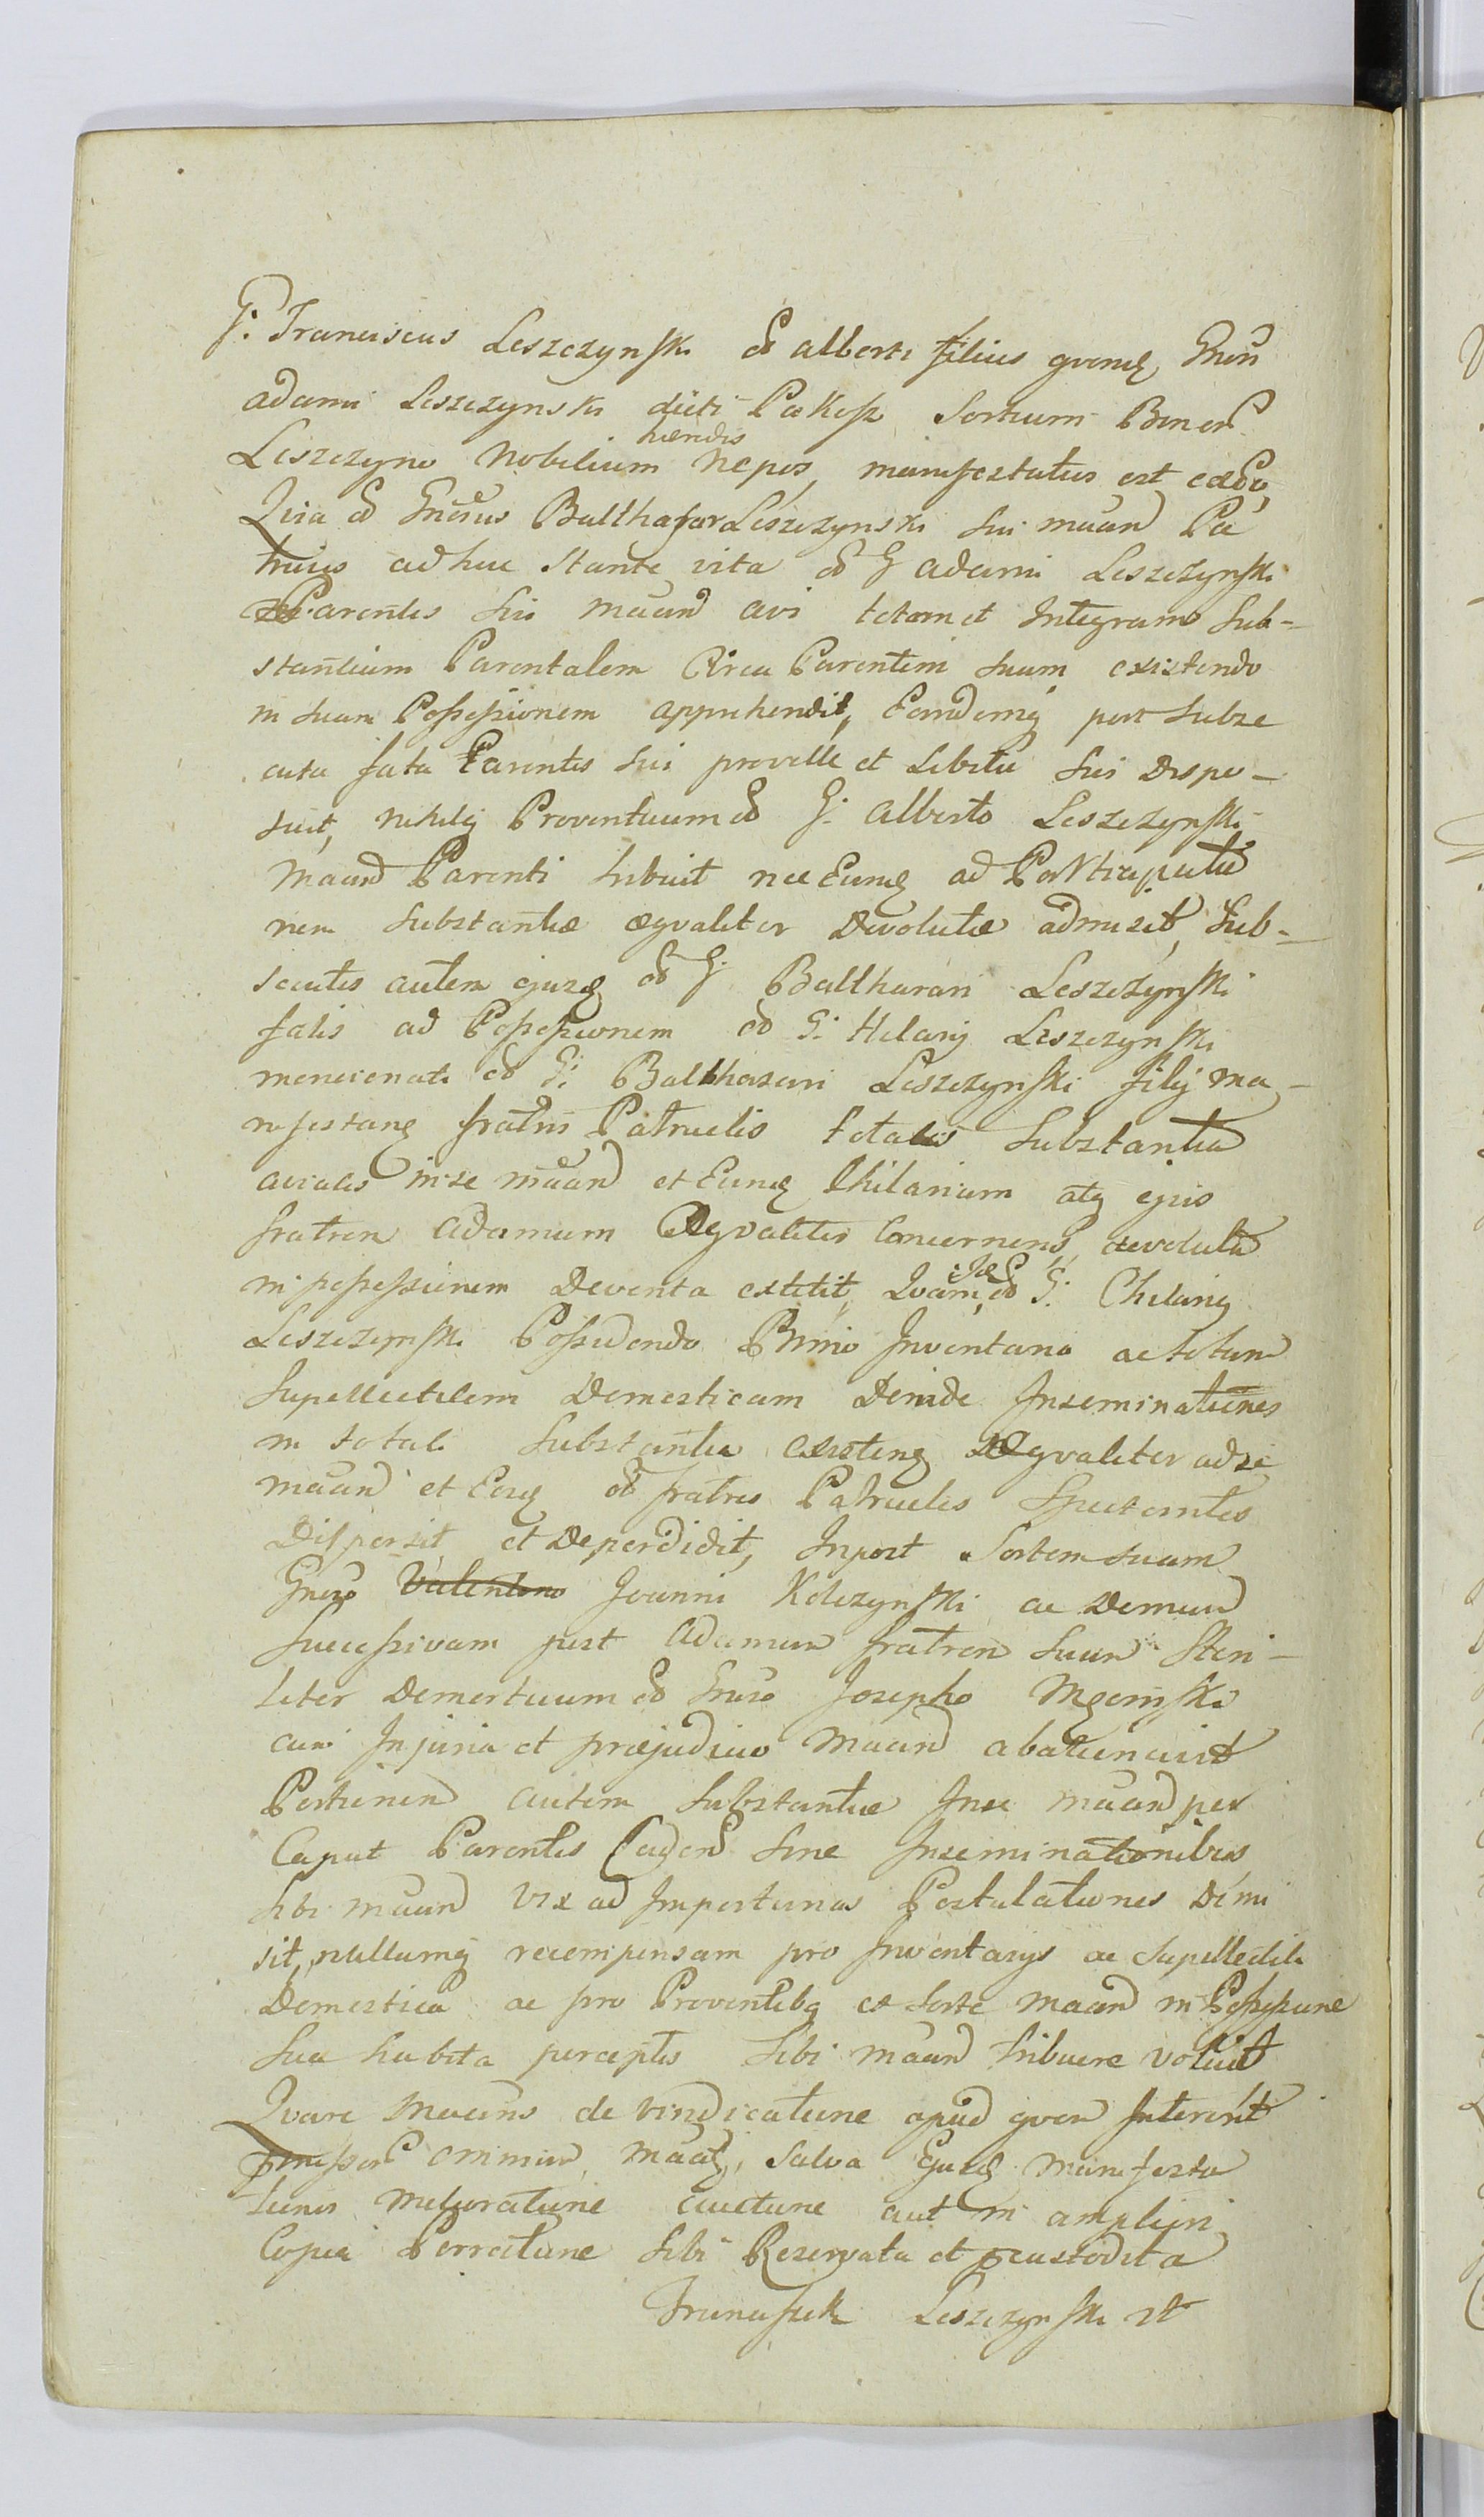 G. Franciscus Leszczynski olim alberti filius quondam Gnosi
adami Leszczynski dicti Pakosz Sortium Bonor
Leszczyno Nobilium haerdis nepos, manifestatus est
Quia olim Gnosus Balthasar Leszczynski sui maand Pa
truus adhuc Stante vita olim G adami Leszczynski
Parentis sui maand avi totam et Integram Sub-
stantiam Parentalem Circa Parentem suum existendo
in suam Possessionem apprehendit, Eamdemq post subse
cuta fata Parentis sui provelle et Libitu sui dispo-
suit, nihilq Proventuum olim G. alberto Leszczynski
maand Parenti tribuit nec Eumq ad
nem substantiae aeqvaliter Devolutae admisit, sub-
secutis autem ejusq olim G. Balthazari Leszczynski
fatis ad Possessionem olim G. Hilarij Leszczynski
mencionati olim G. Balthazari Leszczynski filij ma-
nifestanq fratris Patruelis totalis Substantia
avialis in se maand et Eumq Chilarium atq ejus
fratrem Adamum Aeqvaliter Concernens, devoluta
in possessionem Deventa extitit, Qvam, olim G. Chilarij
Leszczynski Possidendo Primo Inventaria ac totam
Supellectilem Domesticam Deinde Inseminationes
in totali Substantia existenq Aeqvaliter ad se
maand et Eosq olim fratres Patrueles Spectantes
Dispersit et Deperdidit, Inpost Sortem suam
Gneso Valentono Joanni Kolczynski ac Demum
Successivam post Adamum fratrem suum Steri-
liter Demortuum olim Gneso Josepho
cum Injuria et praejudicio maand abalienavit
Pertinen autem Substantiae In se maand per
Caput Parentis Caden Sine Inseminationibus
sibi maand vix ad Importunas Postulationes Dimi
sit, nullamq recempensam pro Inventarys ac Supellectili
Domestica ac pro Proventibq ex sorte maand in Possessione
sua habita perceptis sibi maand tribuere voluit
Qvare Maans de vindicatione apud qvem Intererit
omnium maatq, Salva Ejusq manifesta
tionis melioratione auctione aut in ampliori
Copia Porrectione sibi Reservata et pcustodita
Franciszek Leszczynski